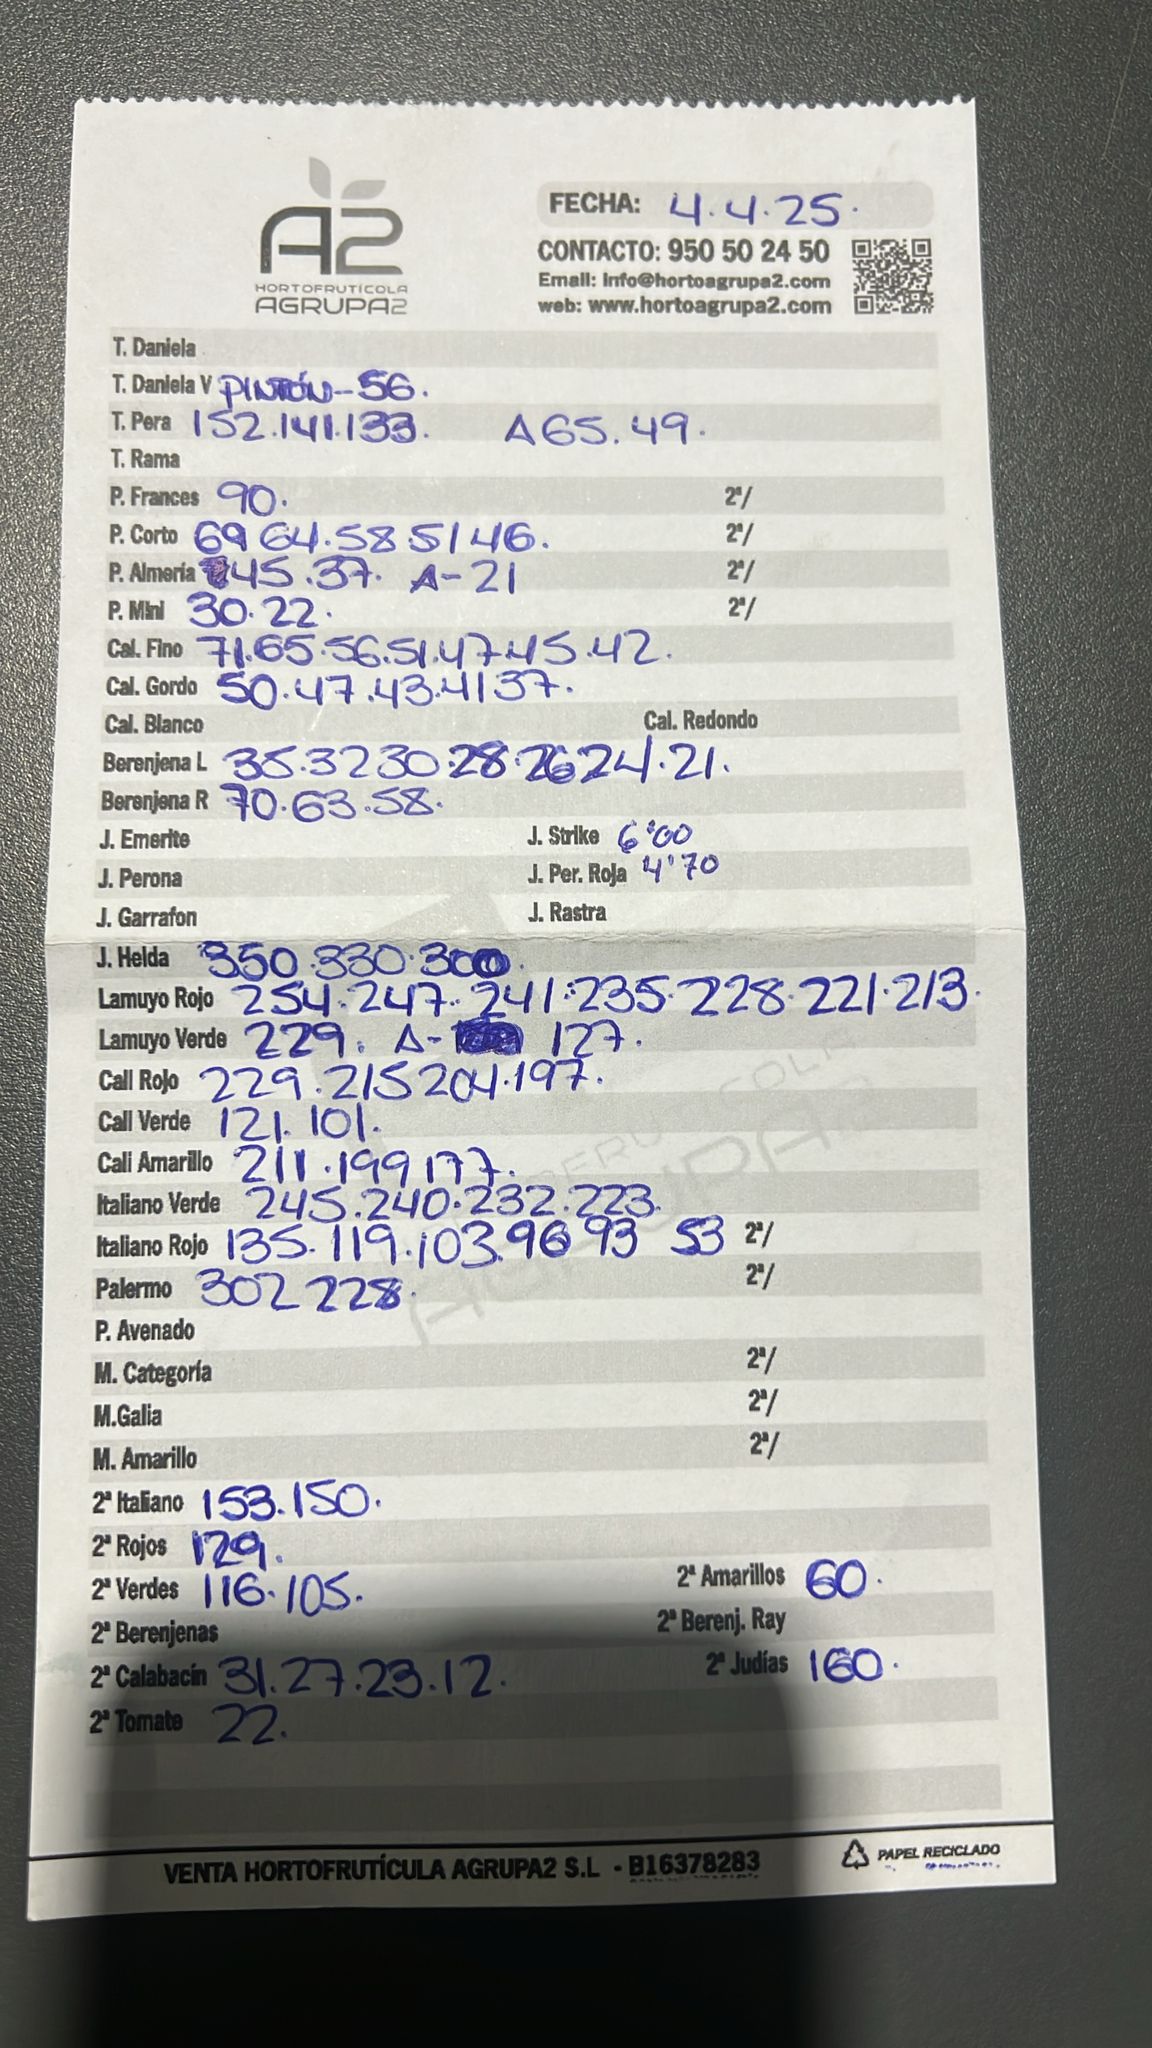 A2
HORTOFRUTÍCOLA
AGRUPA2
FECHA: 4.4.25.
CONTACTO: 950 50 24 50
Email: info@hortoagrupa2.com
web: www.hortoagrupa2.com
T. Daniela
T. Daniela V PINTÓN-56.
T. Pera 152.141.133. A65.49.
T. Rama
P. Frances 90. 2ª/
P. Corto 69 64.58.51 46. 2ª/
P. Almería 45.37. A-21 2ª/
P. Mini 30.22. 2ª/
Cal. Fino 71.65.56.51.47.45.42.
Cal. Gordo 50.47.43.41 37.
Cal. Blanco Cal. Redondo
Berenjena L 35.32 30.28.26 24.21.
Berenjena R 70.63.58.
J. Emerite J. Strike 6'00
J. Perona J. Per. Roja 4'70
J. Garrafon J. Rastra
J. Helda 350.330.300.
Lamuyo Rojo 254.247.241.235.228.221.213.
Lamuyo Verde 229. A- 127.
Cali Rojo 229.215 204.197.
Cali Verde 121.101.
Cali Amarillo 211.199 177.
Italiano Verde 245.240.232.223.
Italiano Rojo 135.119.103.96 93 53 2ª/
Palermo 302 228. 2ª/
P. Avenado
M. Categoría 2ª/
M.Galia 2ª/
M. Amarillo 2ª/
2ª Italiano 153.150.
2ª Rojos 129.
2ª Verdes 116.105. 2ª Amarillos 60.
2ª Berenjenas 2ª Berenj. Ray
2ª Calabacín 31.27.23.12. 2ª Judías 160.
2ª Tomate 22.
VENTA HORTOFRUTÍCULA AGRUPA2 S.L - B16378283
PAPEL RECICLADO